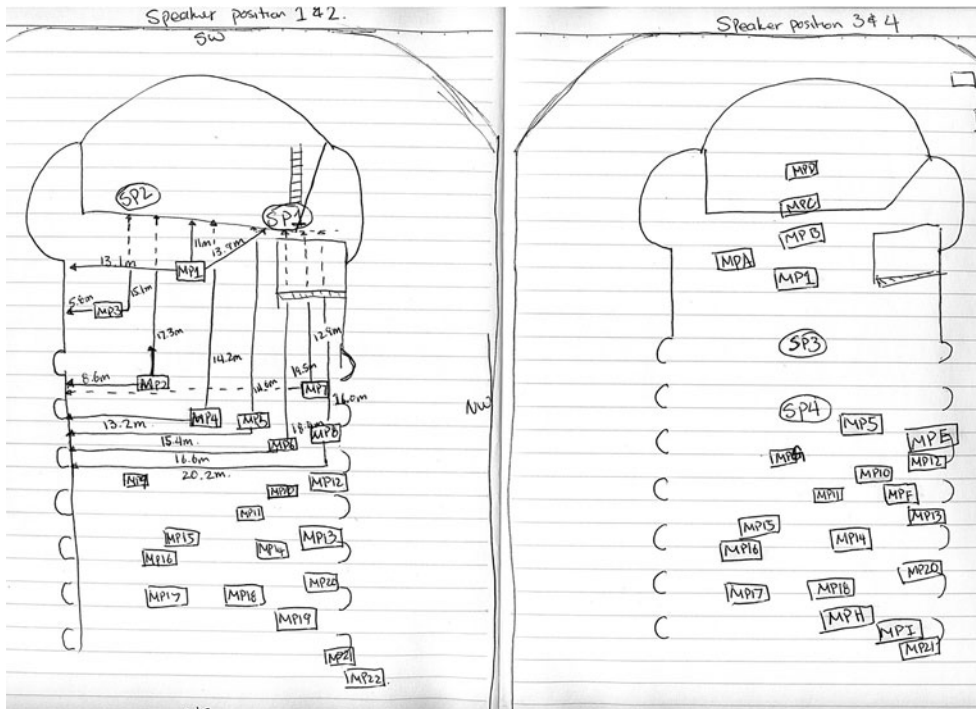 Speaker position 1 & 2.
SW
SP2
SP1
11m
13.9m
13.1m
MP1
5.8m
MP3
15.1m
17.3m
12.9m
14.2m
8.6m
MP2
MP7
16.0m
MP4
MP5
13.2m
MP8
15.4m.
MP6
16.6m
20.2m.
MP9
MP10
MP12
MP11
MP15
MP14
MP13
MP16
MP17
MP18
MP20
MP19
MP21
MP22
NW
Speaker position 3 & 4
MPD
MPC
MPB
MPA
MP1
SP3
SP4
MP5
MPE
MP12
MP10
MP11
MPF
MP13
MP15
MP14
MP16
MP20
MP17
MP18
MPH
MPI
MP21